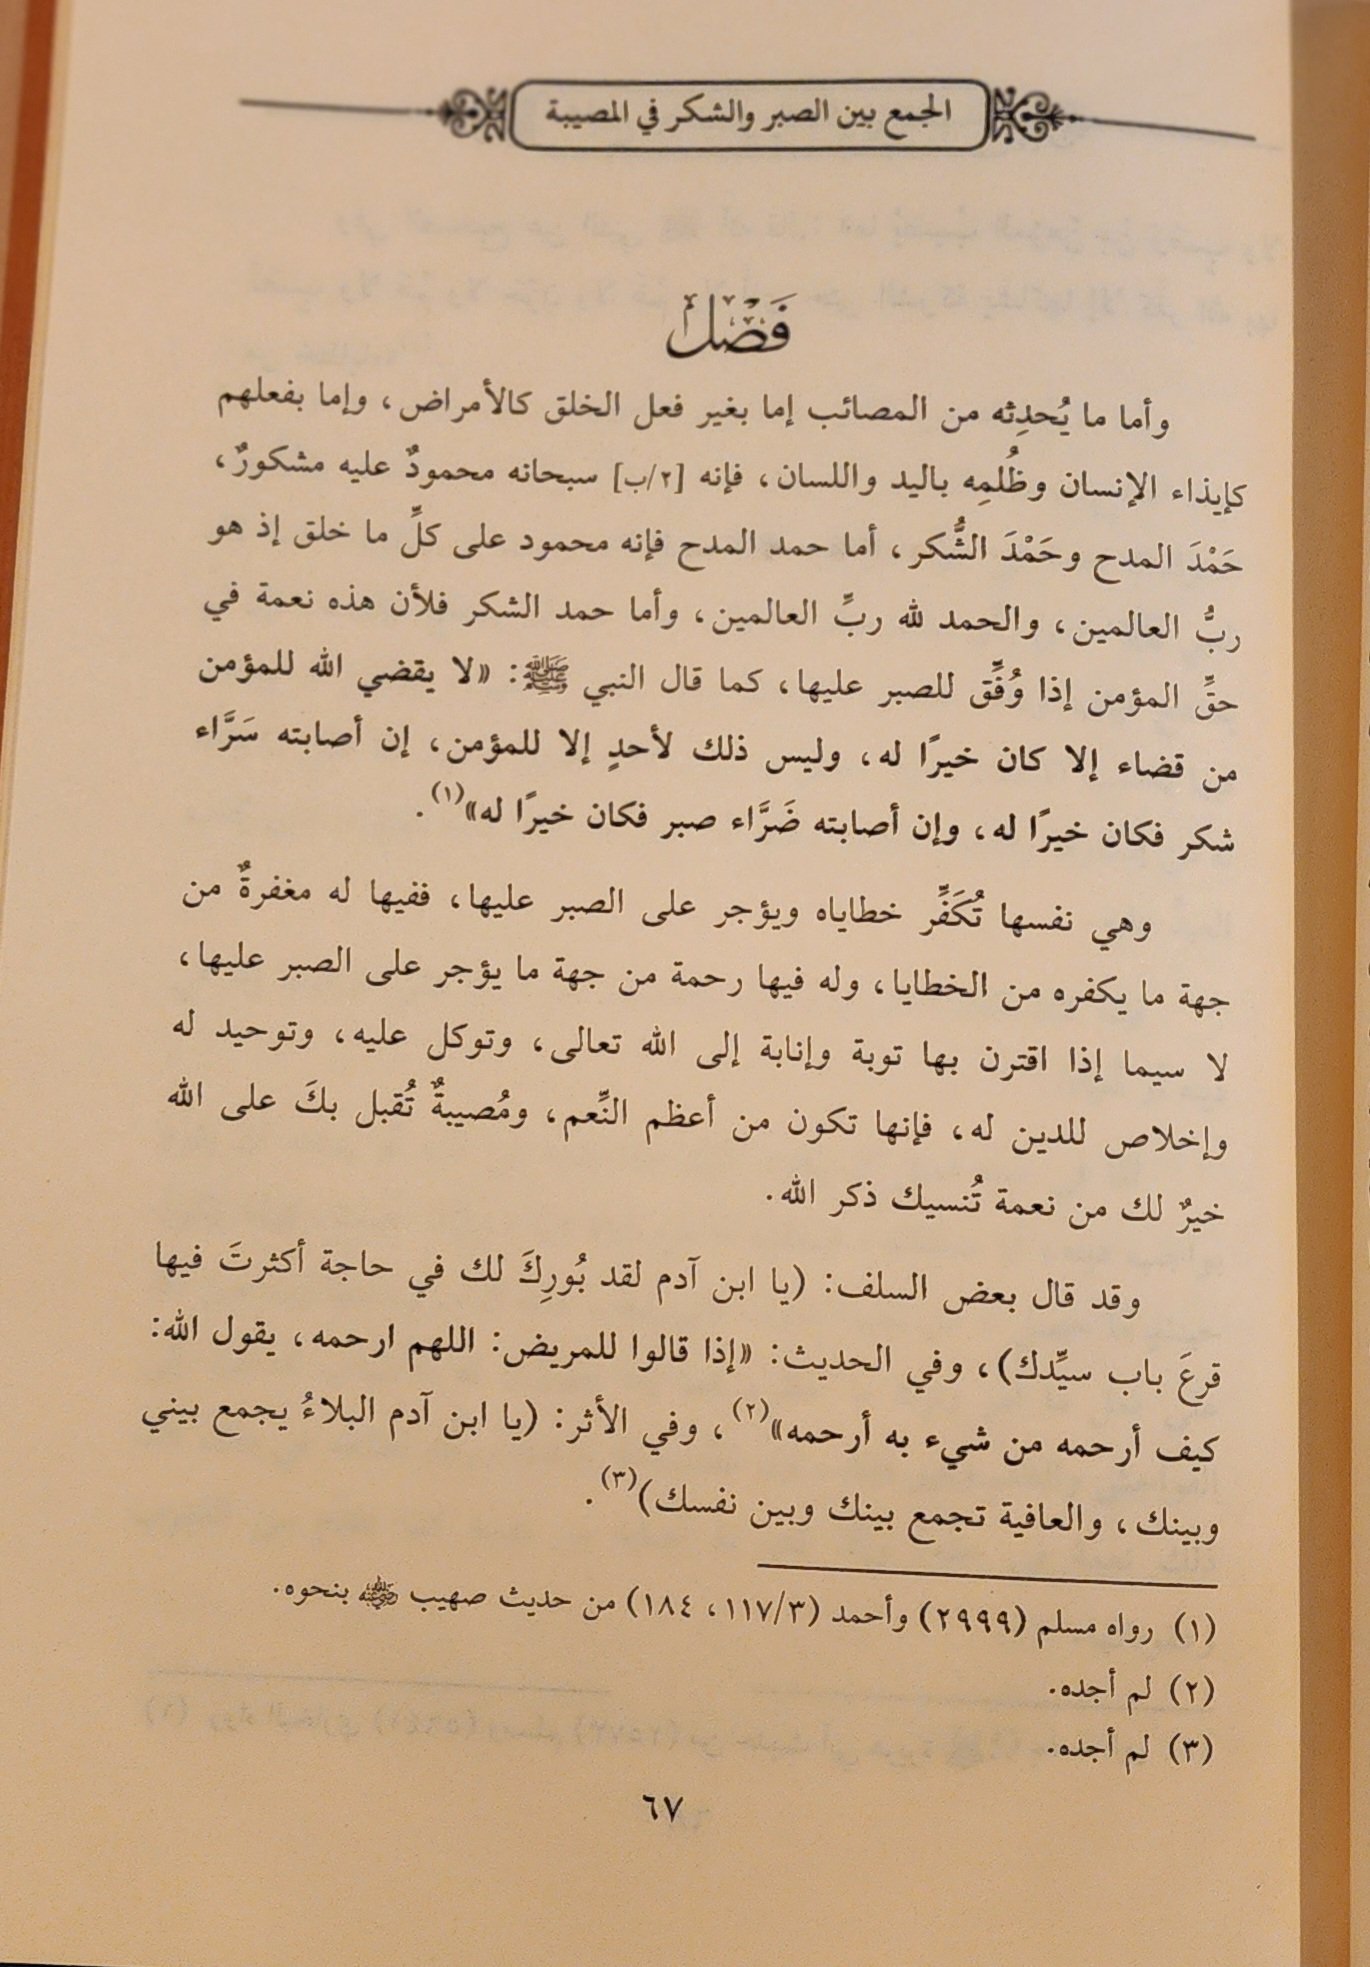 الجمع بين الصبر والشكر في المصيبة
فَصْل
وأما ما يُحدِثه من المصائب إما بغير فعل الخلق كالأمراض، وإما بفعلهم
كإيذاء الإنسان وظُلمِه باليد واللسان، فإنه [٢/ب] سبحانه محمودٌ عليه مشكورٌ،
حَمْدَ المدح وحَمْدَ الشُّكر، أما حمد المدح فإنه محمود على كلِّ ما خلق إذ هو
ربُّ العالمين، والحمد لله ربِّ العالمين، وأما حمد الشكر فلأن هذه نعمة في
حقِّ المؤمن إذا وُفِّق للصبر عليها، كما قال النبي ﷺ: «لا يقضي الله للمؤمن
من قضاء إلا كان خيرًا له، وليس ذلك لأحدٍ إلا للمؤمن، إن أصابته سَرَّاء
شكر فكان خيرًا له، وإن أصابته ضَرَّاء صبر فكان خيرًا له»(١).
وهي نفسها تُكَفِّر خطاياه ويؤجر على الصبر عليها، ففيها له مغفرةٌ من
جهة ما يكفره من الخطايا، وله فيها رحمة من جهة ما يؤجر على الصبر عليها،
لا سيما إذا اقترن بها توبة وإنابة إلى الله تعالى، وتوكل عليه، وتوحيد له
وإخلاص للدين له، فإنها تكون من أعظم النِّعم، ومُصيبةٌ تُقبل بكَ على الله
خيرٌ لك من نعمة تُنسيك ذكر الله.
وقد قال بعض السلف: (يا ابن آدم لقد بُورِكَ لك في حاجة أكثرتَ فيها
قرعَ باب سيِّدك)، وفي الحديث: «إذا قالوا للمريض: اللهم ارحمه، يقول الله:
كيف أرحمه من شيء به أرحمه»(٢)، وفي الأثر: (يا ابن آدم البلاءُ يجمع بيني
وبينك، والعافية تجمع بينك وبين نفسك)(٣).
(١) رواه مسلم (٢٩٩٩) وأحمد (١١٧/٣، ١٨٤) من حديث صهيب رضي الله عنه بنحوه.
(٢) لم أجده.
(٣) لم أجده.
٦٧